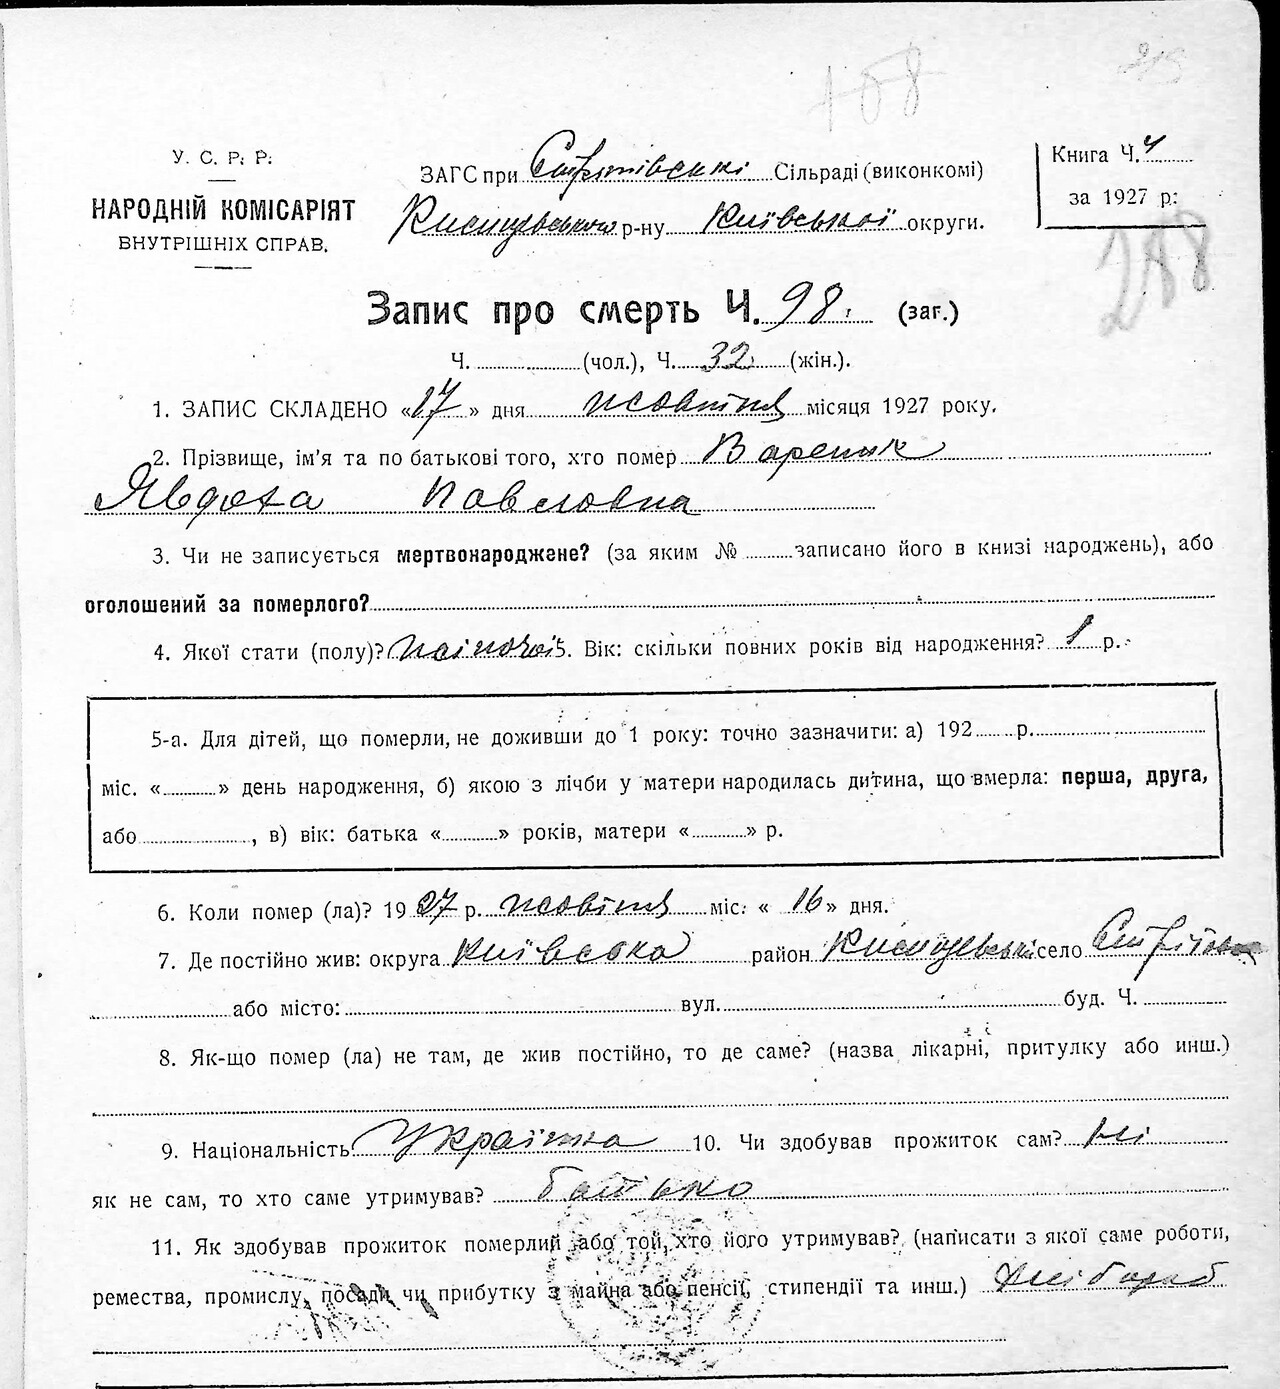 108
У. С. Р. Р.
НАРОДНІЙ КОМІСАРІЯТ
ВНУТРІШНІХ СПРАВ.
ЗАГС при Сільраді (виконкомі)
р-ну Київської округи.
Книга Ч. 4
за 1927 р:
288
Запис про смерть Ч. 98. (заг.)
Ч. (чол.), Ч. 32 (жін.).
1. ЗАПИС СКЛАДЕНО «17» дня жовтня місяця 1927 року.
2. Прізвище, ім'я та по батькові того, хто помер Вареник
Явдоха Павловна
3. Чи не записується мертвонароджене? (за яким № записано його в книзі народжень), або
оголошений за померлого?
4. Якої стати (полу)? жіночої 5. Вік: скільки повних років від народження? 1 р.
5-а. Для дітей, що померли, не доживши до 1 року: точно зазначити: а) 192 р.
міс. « » день народження, б) якою з лічби у матери народилась дитина, що вмерла: перша, друга,
або , в) вік: батька « » років, матери « » р.
6. Коли помер (ла)? 1927 р. жовтня міс. « 16 » дня.
7. Де постійно жив: округа Київська район село
або місто: вул. буд. Ч.
8. Як-що помер (ла) не там, де жив постійно, то де саме? (назва лікарні, притулку або инш.)
9. Національність Українка 10. Чи здобував прожиток сам? ні
як не сам, то хто саме утримував? батько
11. Як здобував прожиток померлий або той, хто його утримував? (написати з якої саме роботи,
ремества, промислу, посади чи прибутку з майна або пенсії, стипендії та инш.) хлібороб